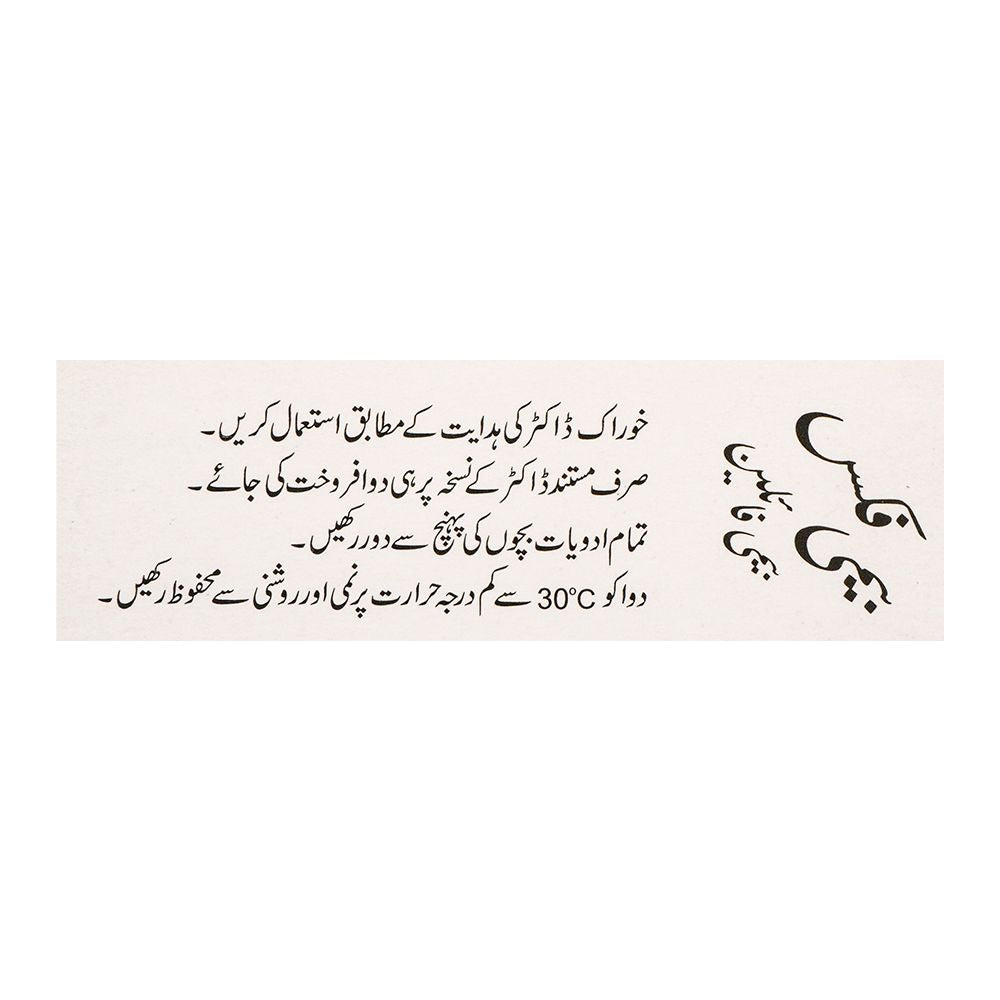 جیمی فلکس
جیمی فلاکسین
خوراک ڈاکٹر کی ہدایت کے مطابق استعمال کریں۔
صرف مستند ڈاکٹر کے نسخہ پر ہی دوا فروخت کی جائے۔
تمام ادویات بچوں کی پہنچ سے دور رکھیں۔
دوا کو 30°C سے کم درجہ حرارت پر نمی اور روشنی سے محفوظ رکھیں۔